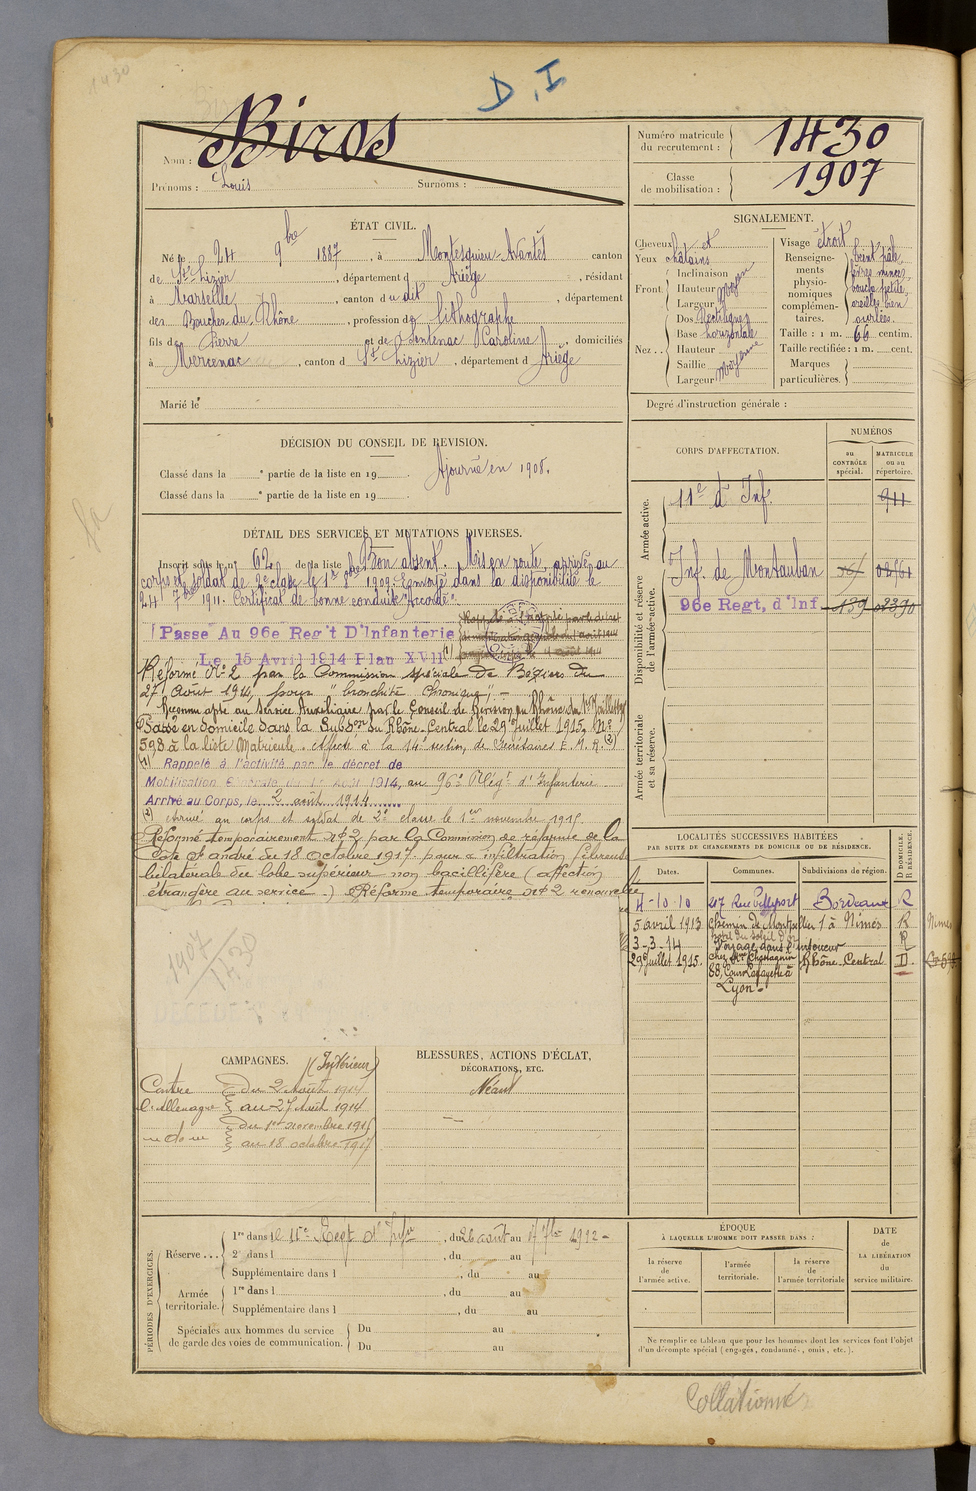 1430
D, I
Nom : Biros
Prénoms : Louis Surnoms :
Numéro matricule du recrutement : 1430
Classe de mobilisation : 1907
ÉTAT CIVIL.
Né le 24 9bre 1887, à Montesquieu-Avantès canton
de St Lizier, département d Ariège, résidant
à Marseille, canton du dit, département
des Bouches du Rhône, profession de lithographe
fils de Pierre et de Sentenac Caroline, domiciliés
à Mercenac, canton d St Lizier, département d Ariège
Marié le
SIGNALEMENT.
Cheveux et
Yeux châtains
Front. Inclinaison
Hauteur moyen
Largeur
Nez .. Dos Rectiligne
Base horizontale
Hauteur
Saillie moyenne
Largeur
Visage étroit
Renseignements physionomiques complémentaires. teint pâle
lèvres minces
bouche petite
oreilles bien
ourlées.
Taille : 1 m. 66 centim.
Taille rectifiée : 1 m. cent.
Marques particulières.
Degré d'instruction générale :
DÉCISION DU CONSEIL DE REVISION.
Classé dans la e partie de la liste en 19 . Ajourné en 1908.
Classé dans la e partie de la liste en 19 .
CORPS D'AFFECTATION.
NUMÉROS
au CONTRÔLE spécial.
MATRICULE ou au répertoire.
Armée active.
11e d'Inf. 911
Disponibilité et réserve de l'armée active.
Inf. de Montauban
96e Regt, d'Inf 439
Armée territoriale et sa réserve.
DÉTAIL DES SERVICES ET MUTATIONS DIVERSES.
Inscrit sous le n° 62 de la liste Bon absent. Mis en route, arrivé au
corps et soldat de 2e classe le 1er 8bre 1909. Envoyé dans la disponibilité le
24 7bre 1911. Certificat de bonne conduite "Accordé".
Passe Au 96e Reg't D'Infanterie
Le 15 Avril 1914 Plan XVII (1)
Réformé N°2 par la Commission spéciale de Béziers du
27 Août 1914, pour "bronchite chronique". -
Reconnu apte au Service Auxiliaire par le Conseil de Revision du Rhône du
Passé en domicile dans la Subdon du Rhône-Central le 29 Juillet 1915, N°
598 à la liste Matricule. Affecté à la 14e section de Secrétaires E. M. R. (2)
(1) Rappelé à l'activité par le décret de
Mobilisation Générale du 1er Août 1914, au 96e Régt d'Infanterie
Arrivé au Corps, le 2 août 1914
(2) Arrivé au corps et soldat de 2e classe le 1er novembre 1915.
Réformé temporairement n°2 par la Commission de réforme de la
Côte St André du 18 octobre 1917 pour "infiltration fibreuse
bilatérale du lobe supérieur non bacillifère (affection
étrangère au service.) Réforme temporaire n°2 renouvelée
1907
1430
LOCALITÉS SUCCESSIVES HABITÉES
PAR SUITE DE CHANGEMENTS DE DOMICILE OU DE RÉSIDENCE.
Dates. Communes. Subdivisions de région. D DOMICILE. R RÉSIDENCE.
4-10-10 47 Rue Pelleport Bordeaux R
5 avril 1913 Chemin de Montpellier 1 à Nîmes R
3-3-14 R
29 juillet 1915. chez Mme Chastagnier Rhône Central D.
88, Cours Lafayette à
Lyon -
CAMPAGNES. (Intérieur)
Contre du 2 Août 1914
l'Allemagne au 27 Août 1914
du 1er novembre 1915
au 18 octobre 1917
BLESSURES, ACTIONS D'ÉCLAT,
DÉCORATIONS, ETC.
Néant
PÉRIODES D'EXERCICES.
Réserve ... 1re dans le 11e Regt d'Infie, du 26 août au 7bre 1912 -
2e dans l , du au
Supplémentaire dans l , du au
Armée territoriale. 1re dans l , du au
Supplémentaire dans l , du au
Spéciales aux hommes du service de garde des voies de communication. Du au
Du au
ÉPOQUE
À LAQUELLE L'HOMME DOIT PASSER DANS :
la réserve de l'armée active.
l'armée territoriale.
la réserve de l'armée territoriale
DATE de LA LIBÉRATION du service militaire.
Ne remplir ce tableau que pour les hommes dont les services font l'objet
d'un décompte spécial (engagés, condamnés, omis, etc.).
Collationné